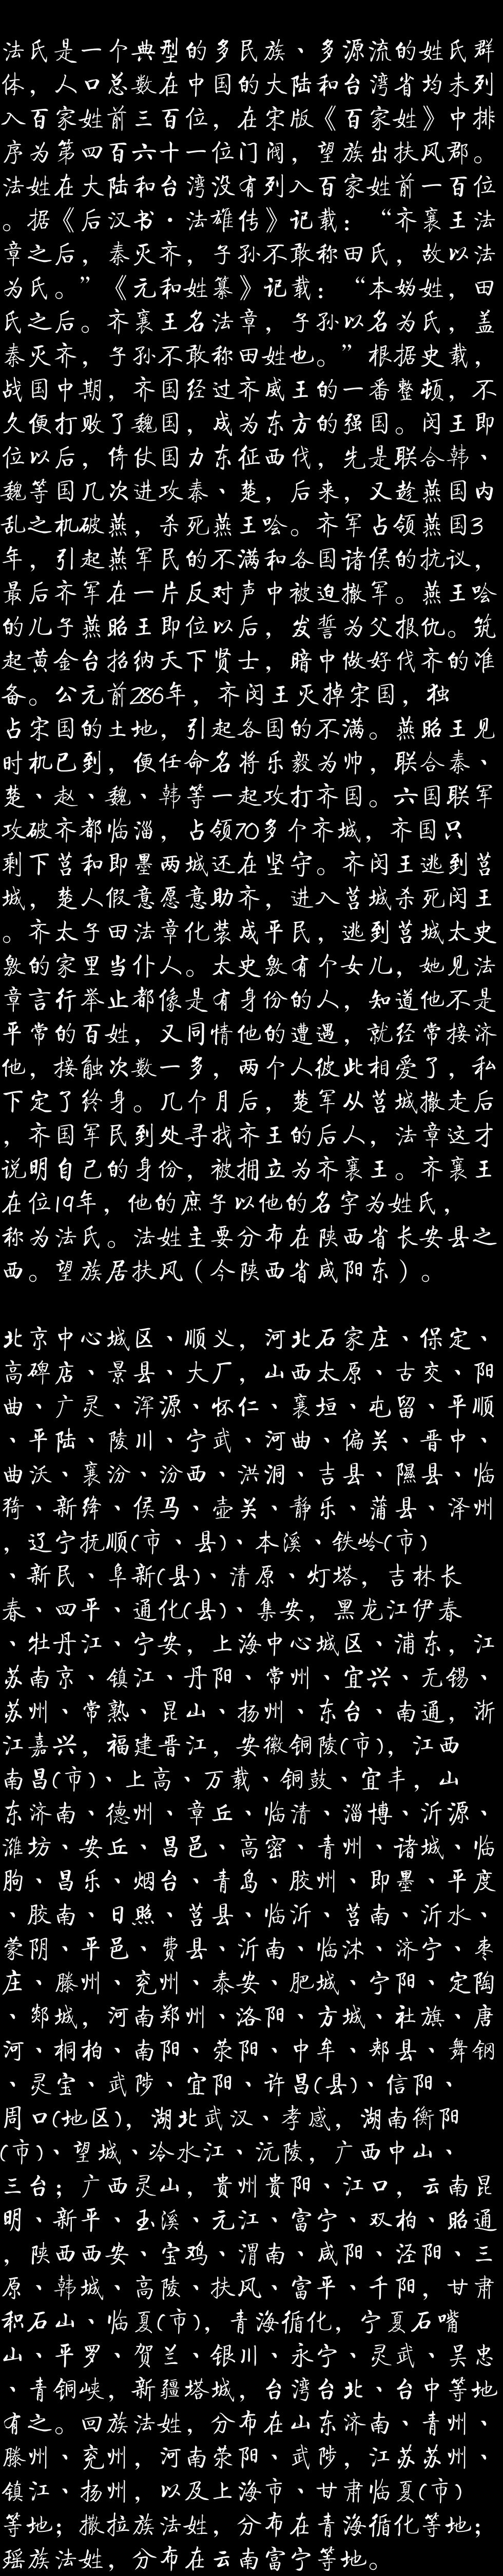 法氏是一个典型的多民族、多源流的姓氏群
体，人口总数在中国的大陆和台湾省均未列
入百家姓前三百位，在宋版《百家姓》中排
序为第四百六十一位门阀，望族出扶风郡。
法姓在大陆和台湾没有列入百家姓前一百位
。据《后汉书·法雄传》记载：“齐襄王法
章之后，秦灭齐，子孙不敢称田氏，故以法
为氏。”《元和姓纂》记载：“本妫姓，田
氏之后。齐襄王名法章，子孙以名为氏，盖
秦灭齐，子孙不敢称田姓也。”根据史载，
战国中期，齐国经过齐威王的一番整顿，不
久便打败了魏国，成为东方的强国。闵王即
位以后，倚仗国力东征西伐，先是联合韩、
魏等国几次进攻秦、楚，后来，又趁燕国内
乱之机破燕，杀死燕王哙。齐军占领燕国3
年，引起燕军民的不满和各国诸侯的抗议，
最后齐军在一片反对声中被迫撤军。燕王哙
的儿子燕昭王即位以后，发誓为父报仇。筑
起黄金台招纳天下贤士，暗中做好伐齐的准
备。公元前286年，齐闵王灭掉宋国，独
占宋国的土地，引起各国的不满。燕昭王见
时机已到，便任命名将乐毅为帅，联合秦、
楚、赵、魏、韩等一起攻打齐国。六国联军
攻破齐都临淄，占领70多个齐城，齐国只
剩下莒和即墨两城还在坚守。齐闵王逃到莒
城，楚人假意愿意助齐，进入莒城杀死闵王
。齐太子田法章化装成平民，逃到莒城太史
敫的家里当仆人。太史敫有个女儿，她见法
章言行举止都像是有身份的人，知道他不是
平常的百姓，又同情他的遭遇，就经常接济
他，接触次数一多，两个人彼此相爱了，私
下定了终身。几个月后，楚军从莒城撤走后
，齐国军民到处寻找齐王的后人，法章这才
说明自己的身份，被拥立为齐襄王。齐襄王
在位19年，他的庶子以他的名字为姓氏，
称为法氏。法姓主要分布在陕西省长安县之
西。望族居扶风（今陕西省咸阳东）。
北京中心城区、顺义，河北石家庄、保定、
高碑店、景县、大厂，山西太原、古交、阳
曲、广灵、浑源、怀仁、襄垣、屯留、平顺
、平陆、陵川、宁武、河曲、偏关、晋中、
曲沃、襄汾、汾西、洪洞、吉县、隰县、临
猗、新绛、侯马、壶关、静乐、蒲县、泽州
，辽宁抚顺(市、县)、本溪、铁岭(市)
、新民、阜新(县)、清原、灯塔，吉林长
春、四平、通化(县)、集安，黑龙江伊春
、牡丹江、宁安，上海中心城区、浦东，江
苏南京、镇江、丹阳、常州、宜兴、无锡、
苏州、常熟、昆山、扬州、东台、南通，浙
江嘉兴，福建晋江，安徽铜陵(市)，江西
南昌(市)、上高、万载、铜鼓、宜丰，山
东济南、德州、章丘、临清、淄博、沂源、
潍坊、安丘、昌邑、高密、青州、诸城、临
朐、昌乐、烟台、青岛、胶州、即墨、平度
、胶南、日照、莒县、临沂、莒南、沂水、
蒙阴、平邑、费县、沂南、临沭、济宁、枣
庄、滕州、兖州、泰安、肥城、宁阳、定陶
、郯城，河南郑州、洛阳、方城、社旗、唐
河、桐柏、南阳、荥阳、中牟、郏县、舞钢
、灵宝、武陟、宜阳、许昌(县)、信阳、
周口(地区)，湖北武汉、孝感，湖南衡阳
(市)、望城、冷水江、沅陵，广西中山、
三台；广西灵山，贵州贵阳、江口，云南昆
明、新平、玉溪、元江、富宁、双柏、昭通
，陕西西安、宝鸡、渭南、咸阳、泾阳、三
原、韩城、高陵、扶风、富平、千阳，甘肃
积石山、临夏(市)，青海循化，宁夏石嘴
山、平罗、贺兰、银川、永宁、灵武、吴忠
、青铜峡，新疆塔城，台湾台北、台中等地
有之。回族法姓，分布在山东济南、青州、
滕州、兖州，河南荥阳、武陟，江苏苏州、
镇江、扬州，以及上海市、甘肃临夏(市)
等地；撒拉族法姓，分布在青海循化等地；
瑶族法姓，分布在云南富宁等地。